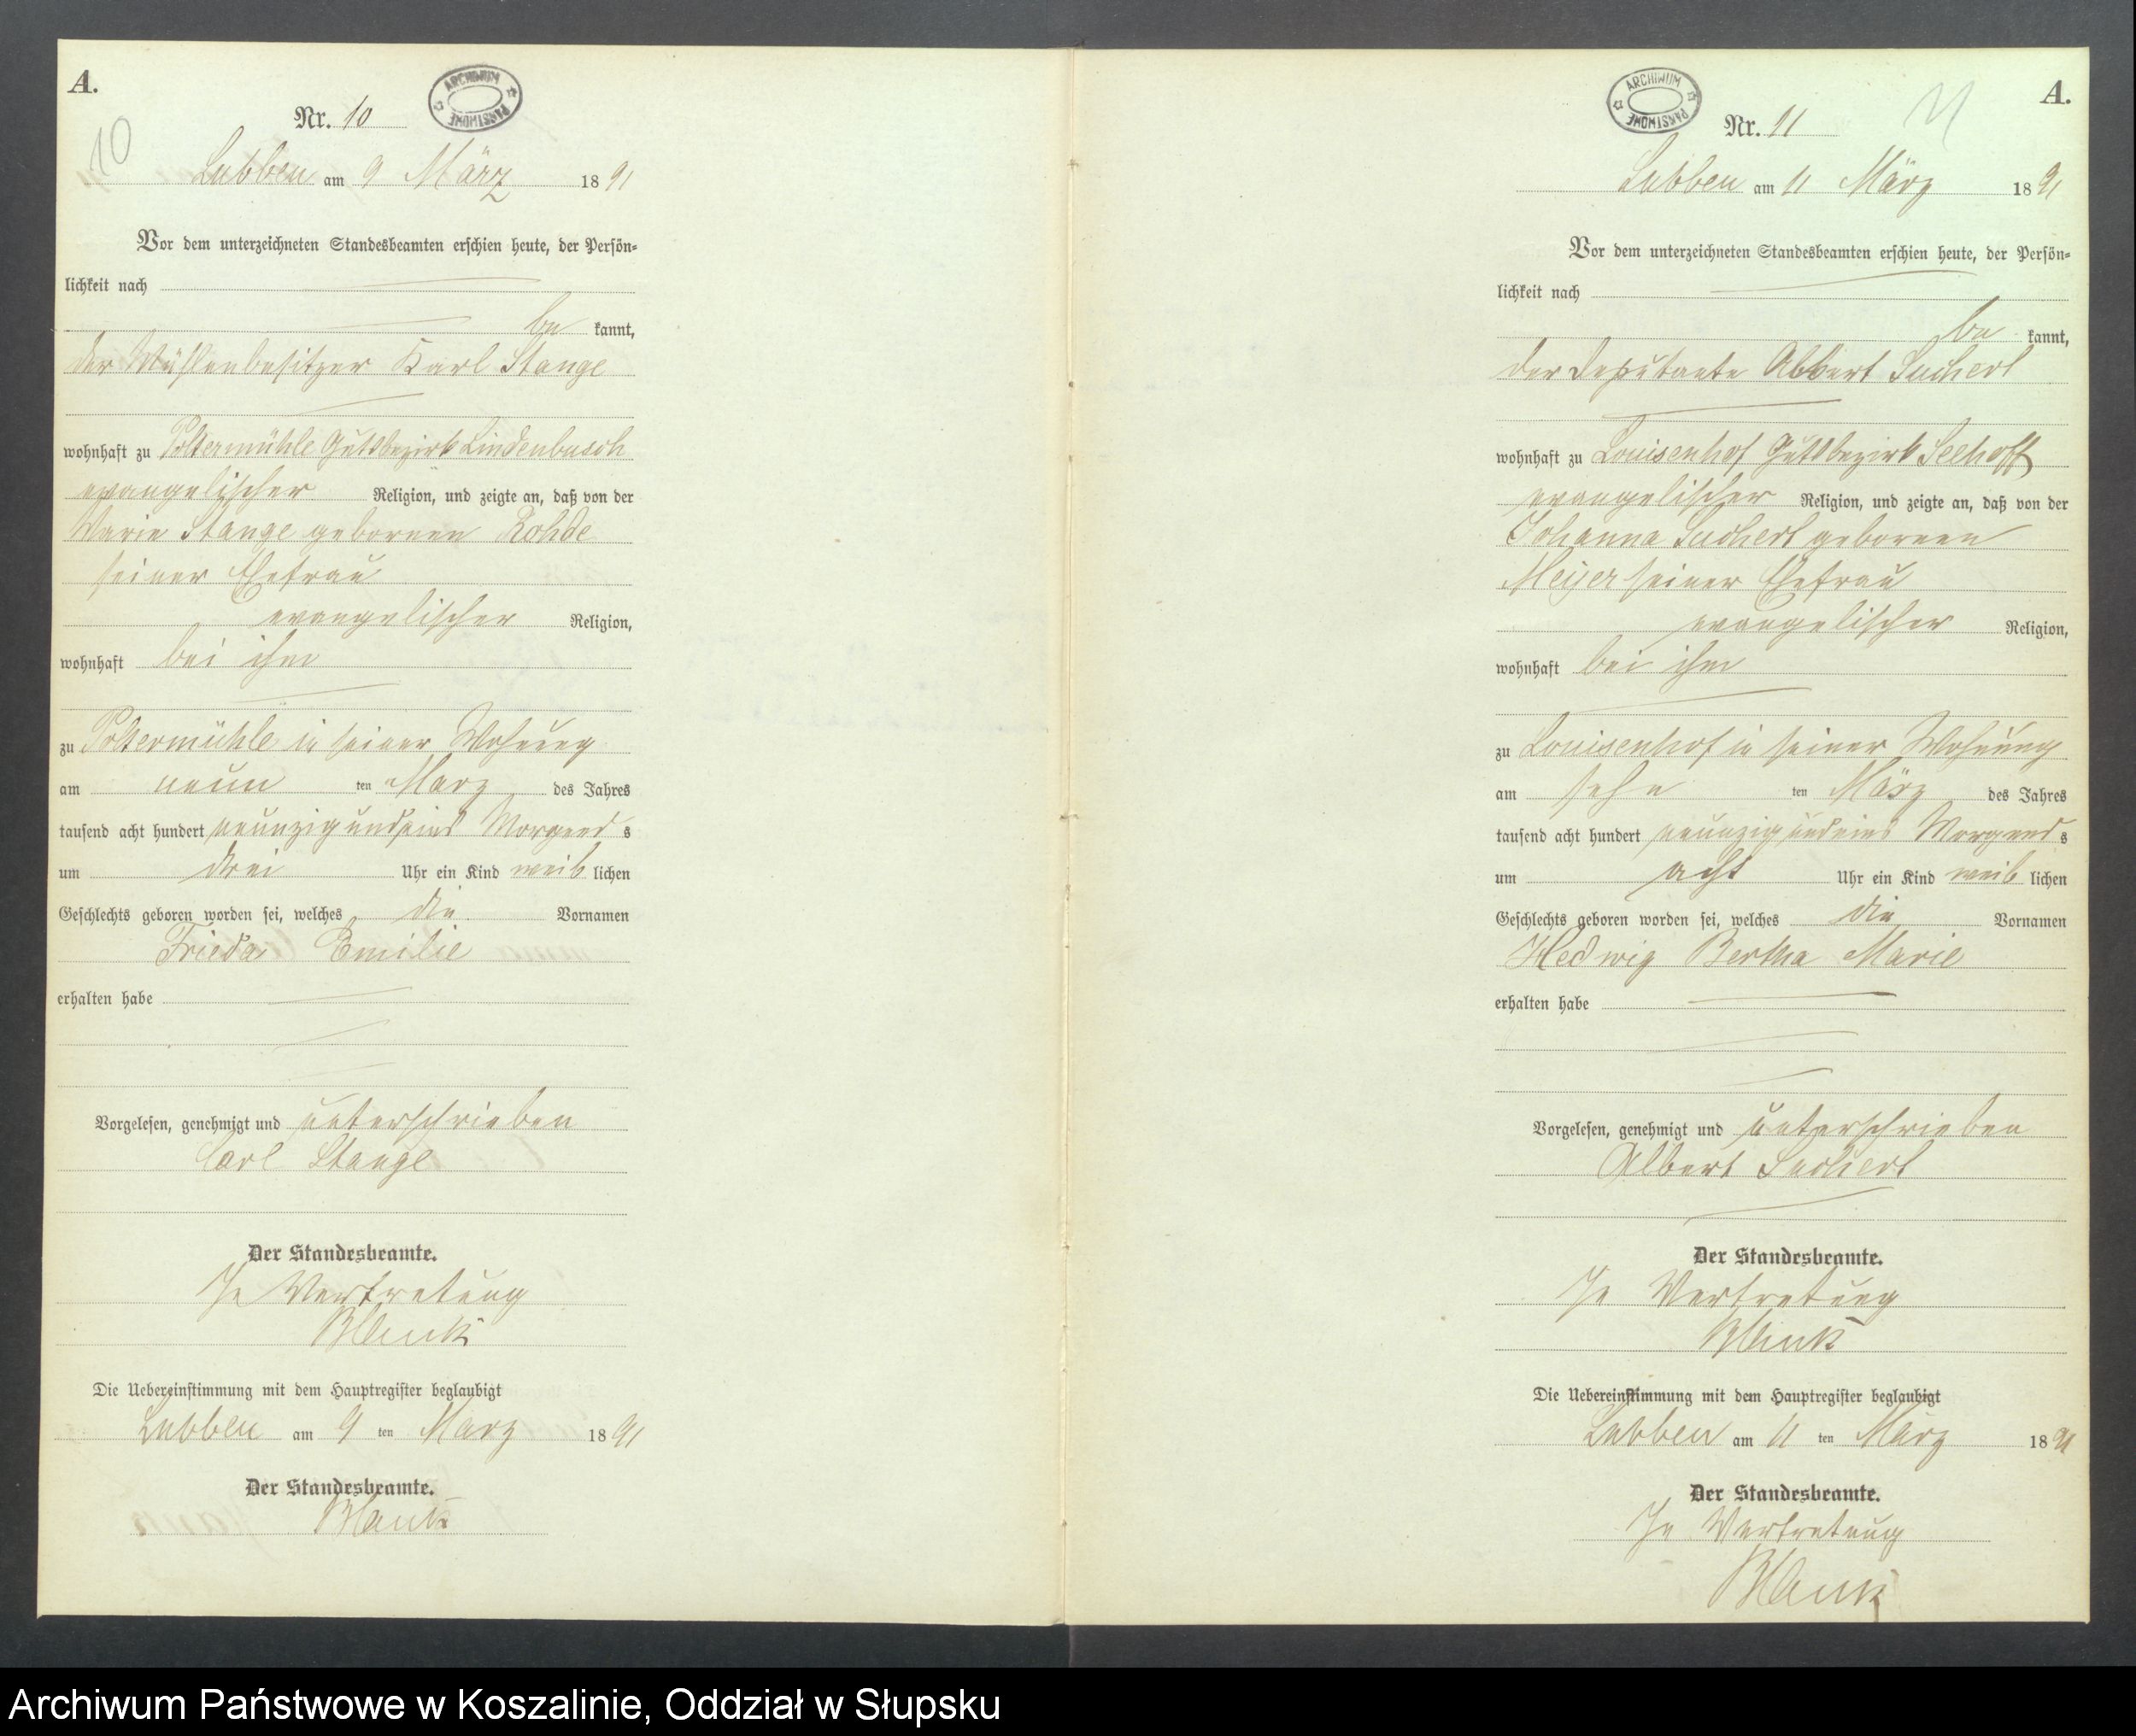 A.
10
Nr. 10
ARCHIWUM PAŃSTWOWE
Lubben am 9 März 1891
Vor dem unterzeichneten Standesbeamten erschien heute, der Persön=
lichkeit nach
be kannt,
der Mühlenbesitzer Karl Stange
wohnhaft zu Poltermühle Gutsbezirk Lindenbusch
evangelischer Religion, und zeigte an, daß von der
Marie Stange gebornen Rohde
seiner Ehefrau
evangelischer Religion,
wohnhaft bei ihm
zu Poltermühle in seiner Wohnung
am neun ten März des Jahres
tausend acht hundert neunzig und eins Morgend s
um drei Uhr ein Kind weib lichen
Geschlechts geboren worden sei, welches die Vornamen
Frieda Emilie
erhalten habe
Vorgelesen, genehmigt und unterschrieben
Carl Stange
Der Standesbeamte.
In Vertretung
Blank
Die Uebereinstimmung mit dem Hauptregister beglaubigt
Lubben am 9 ten März 1891
Der Standesbeamte.
Blank
A.
11
Nr. 11
ARCHIWUM PAŃSTWOWE
Lubben am 11 März 1891
Vor dem unterzeichneten Standesbeamten erschien heute, der Persön=
lichkeit nach
be kannt,
der Deputante Albert Suckert
wohnhaft zu Louisenhof Gutsbezirk Seehoff
evangelischer Religion, und zeigte an, daß von der
Johanna Suckert gebornen
Meyer seiner Ehefrau
evangelischer Religion,
wohnhaft bei ihm
zu Louisenhof in seiner Wohnung
am zehn ten März des Jahres
tausend acht hundert neunzig und eins Morgend s
um acht Uhr ein Kind weib lichen
Geschlechts geboren worden sei, welches die Vornamen
Hedwig Bertha Marie
erhalten habe
Vorgelesen, genehmigt und unterschrieben
Albert Suckert
Der Standesbeamte.
In Vertretung
Blank
Die Uebereinstimmung mit dem Hauptregister beglaubigt
Lubben am 11 ten März 1891
Der Standesbeamte.
In Vertretung
Blank
Archiwum Państwowe w Koszalinie, Oddział w Słupsku